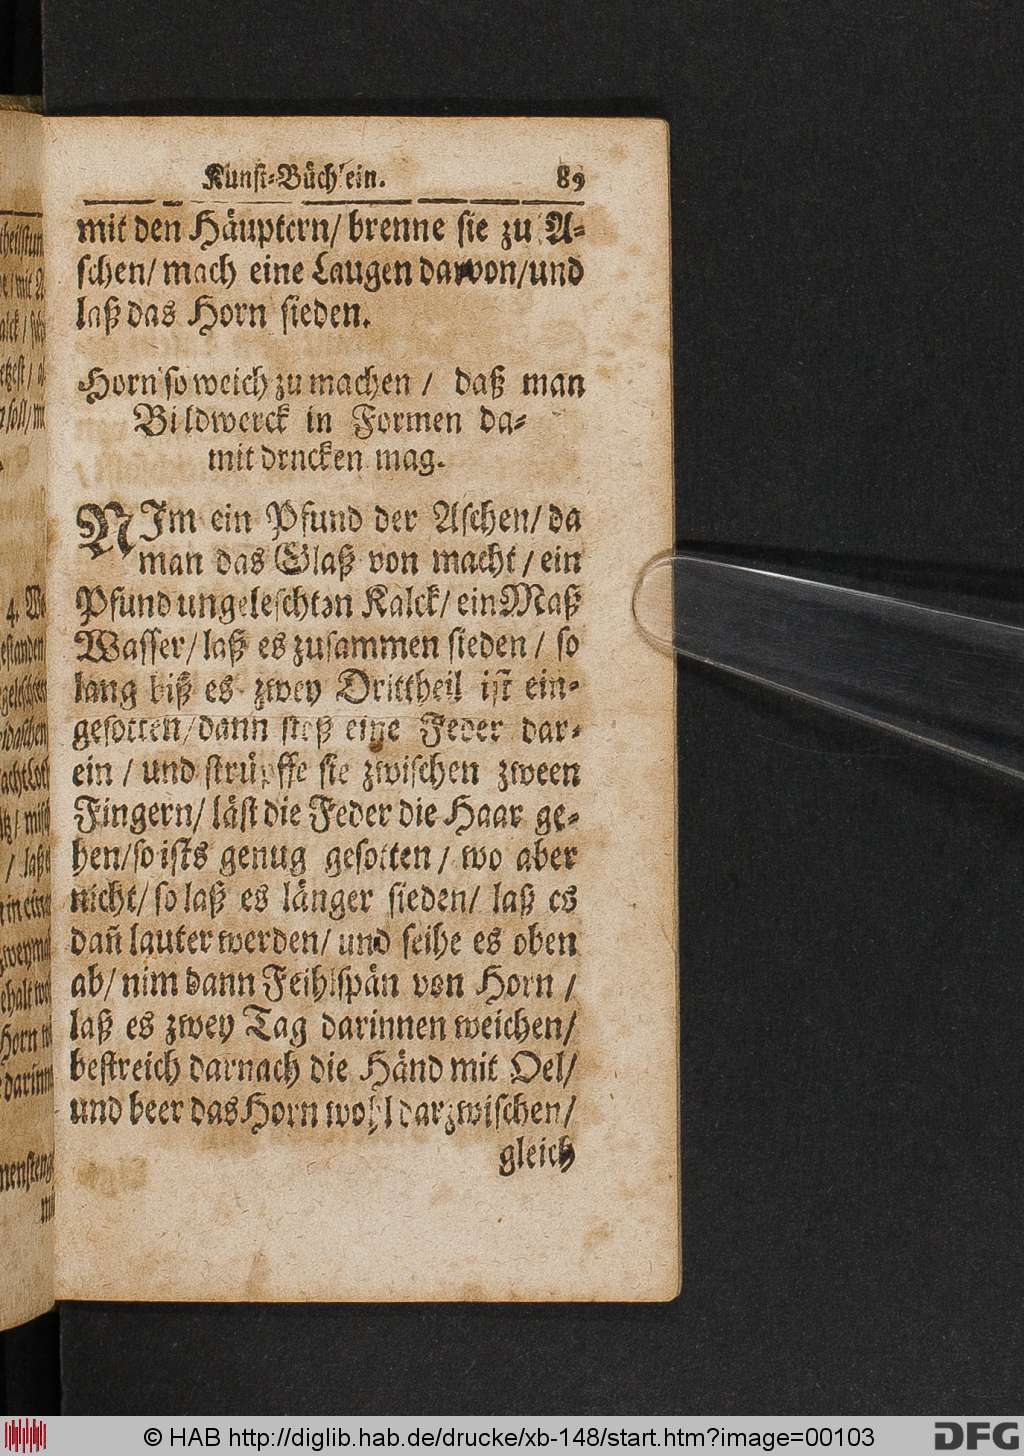 Kunst-Büchlein. 89
mit den Häuptern/ brenne sie zu A-
schen/ mach eine Laugen darvon/und
laß das Horn sieden.
Horn so weich zu machen / daß man
Bildwerck in Formen da-
mit drucken mag.
NIm ein Pfund der Aschen/ da
man das Glaß von macht / ein
Pfund ungeleschten Kalck/ ein Maß
Wasser/ laß es zusammen sieden / so
lang biß es zwey Drittheil ist ein-
gesotten/ dann stoß eine Feder dar-
ein / und strüpffe sie zwischen zween
Fingern/ läst die Feder die Haar ge-
hen/so ists genug gesotten / wo aber
nicht/ so laß es länger sieden/ laß es
dañ lauter werden/ und seihe es oben
ab/ nim dann Feihlspän von Horn /
laß es zwey Tag darinnen weichen/
bestreich darnach die Händ mit Oel/
und beer das Horn wohl darzwischen/
gleich
© HAB http://diglib.hab.de/drucke/xb-148/start.htm?image=00103
DFG